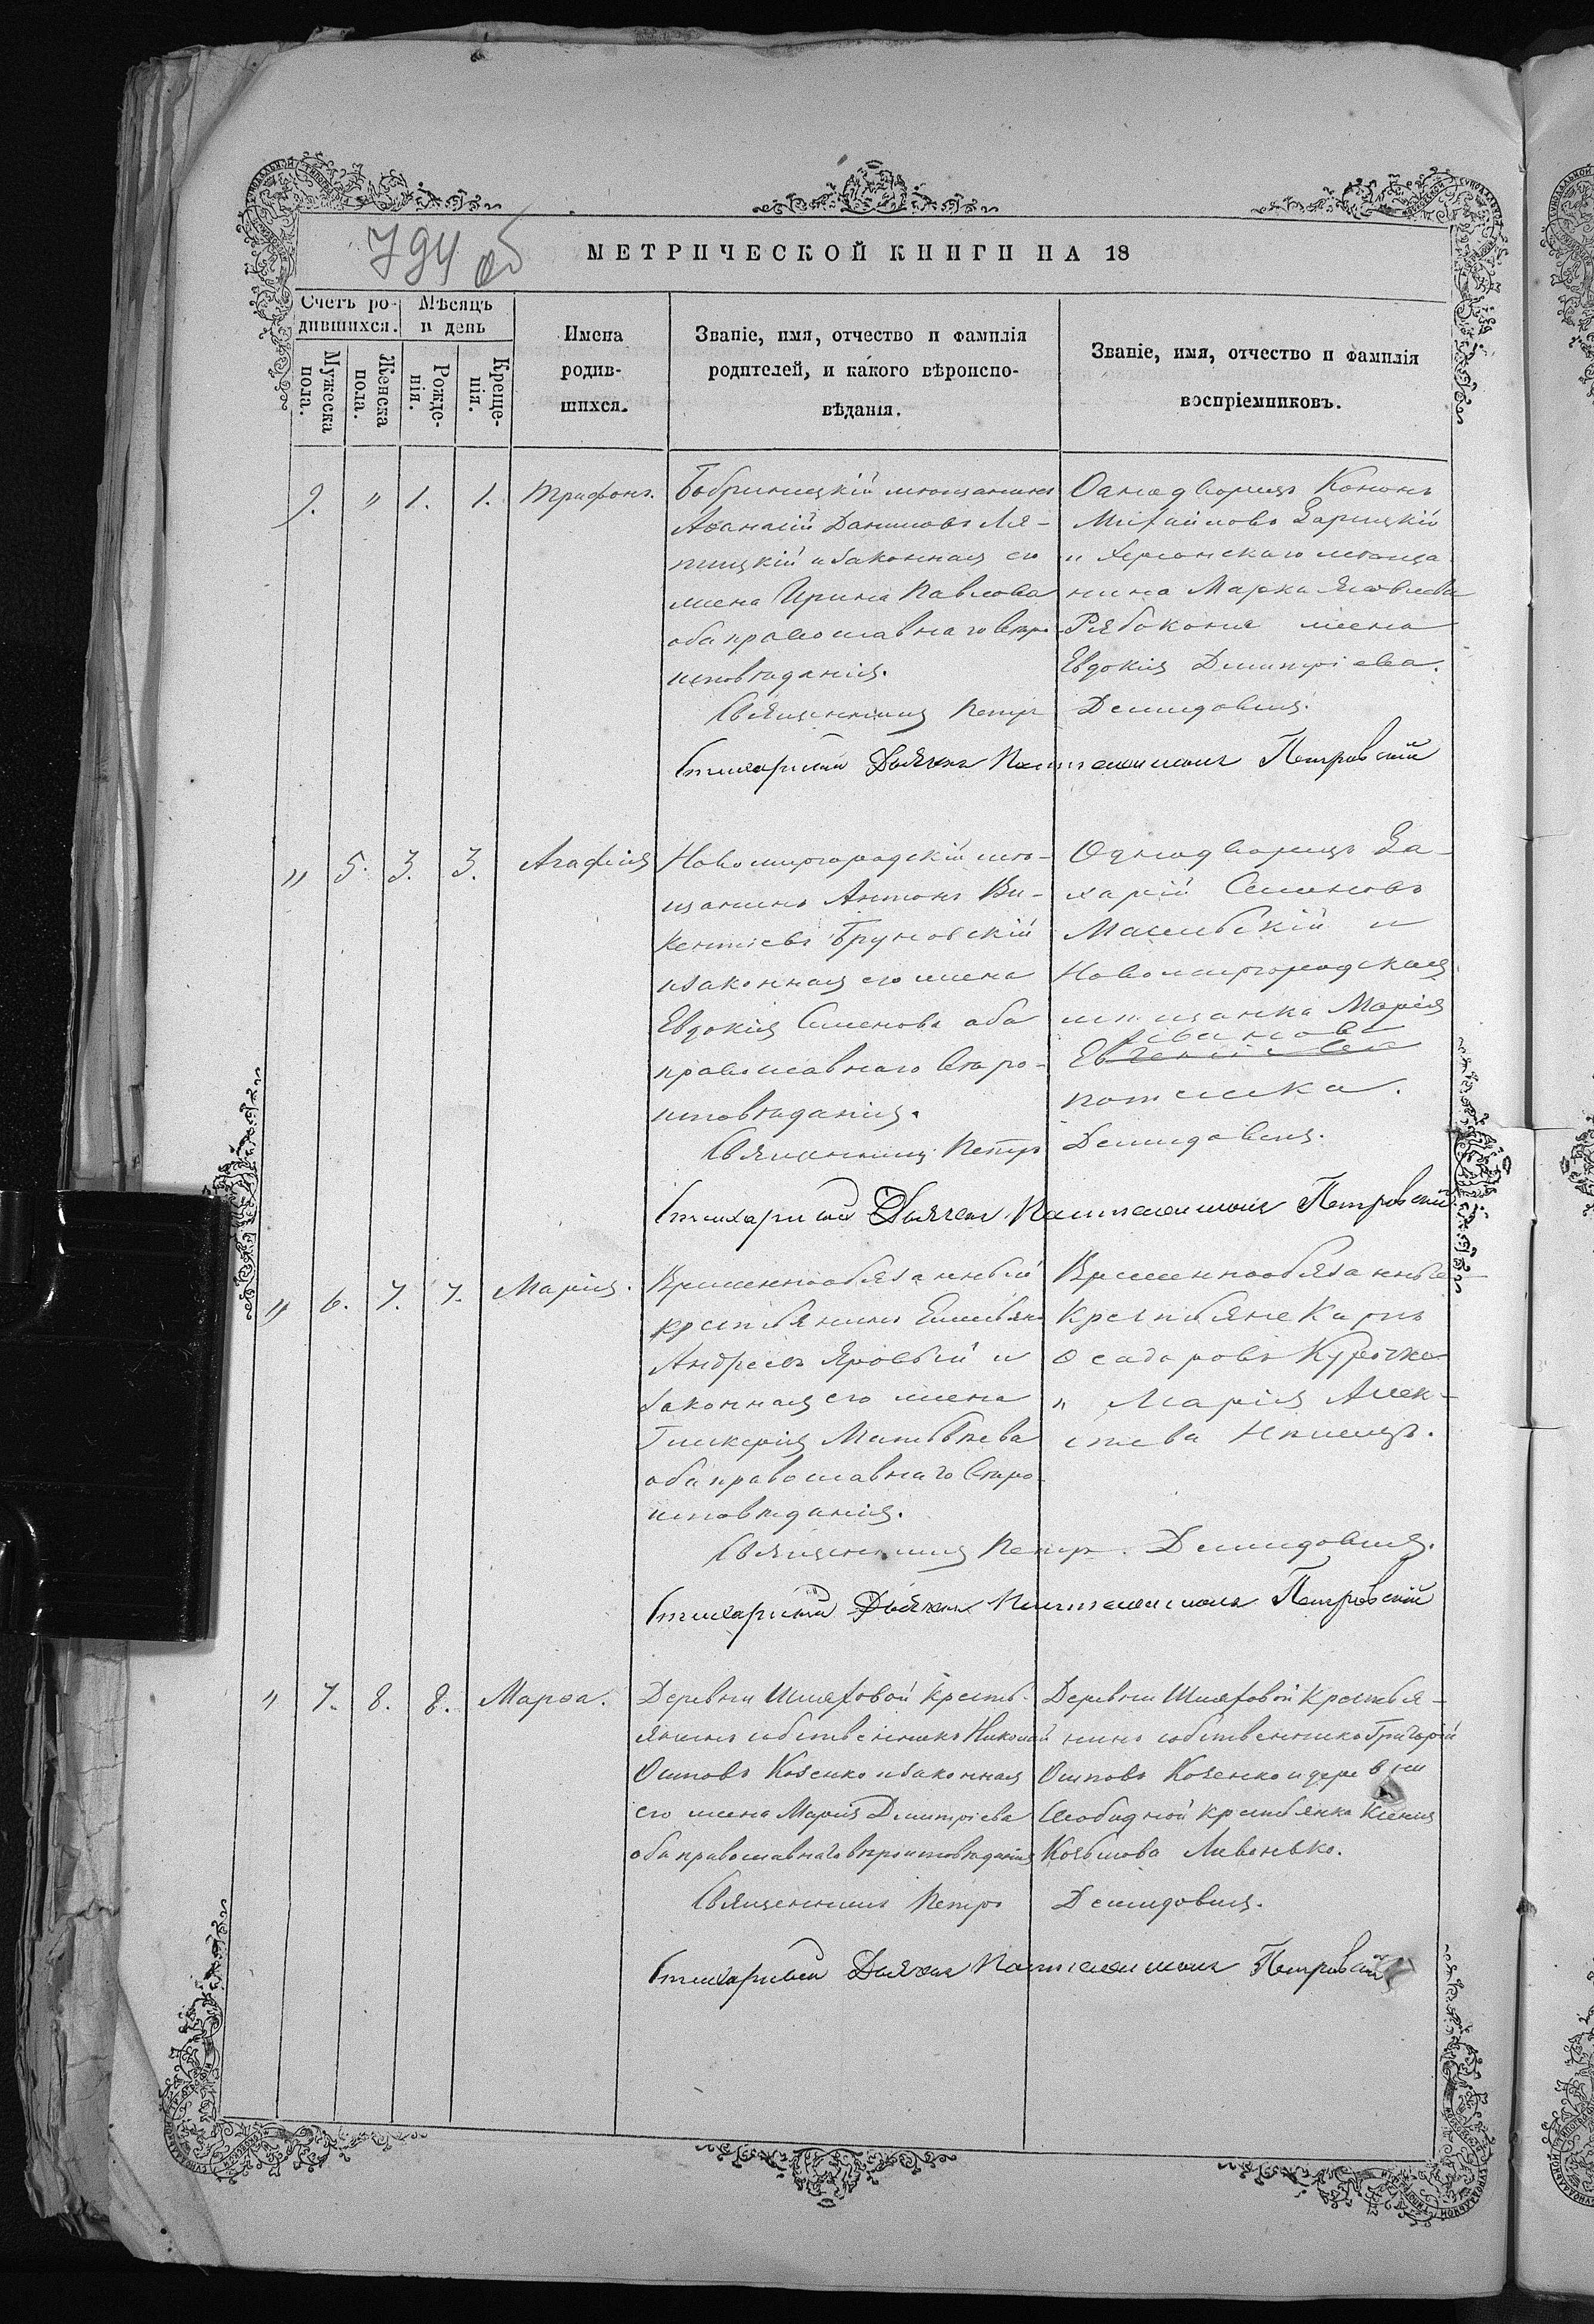 794 об
МЕТРИЧЕСКОЙ КНИГИ НА 18
Счетъ ро-
дившихся.
Мѣсяцъ
и день
Мужеска
пола.
Женска
пола.
Рожде-
нія.
Креще-
нія.
Имена
родив-
шихся.
Званіе, имя, отчество и фамилія
родителей, и какого вѣроиспо-
вѣданія.
Званіе, имя, отчество и фамилія
воспріемниковъ.
9. " 1. 1. Трифонъ.
Бобринецкій мѣщанинъ
Аѳанасій Даниловъ Ля-
пицкій и законная его
жена Ирина Павлова
оба православнаго вѣро
исповѣданія.
Однодворецъ Кононъ
Михайловъ Зарицкій
и Херсонскаго мѣща
нина Марка Яковлева
Рябоконя жена
Евдокія Димитріева.
Священникъ Петръ Демидовичъ.
Стихарный Дьячекъ Пантелеимонъ Петровскій
" 5. 3. 3. Агафія
Новомиргородскій мѣ-
щанинъ Антонъ Ви-
кентіевъ Бруновскій
и законная его жена
Евдокія Семенова оба
православнаго вѣро-
исповѣданія.
Однодворецъ За-
харій Семеновъ
и
Новомиргородская
мѣщанка Марія
Иванова
Священникъ Петръ Демидовичъ.
Стихарный Дьячекъ Пантелеимонъ Петровскій
" 6. 7. 7. Марія.
Временнообязанный
крестьянинъ Емельянъ
Андреевъ Яровый и
законная его жена
Гликерія Матвѣева
оба православнаго вѣро
исповѣданія.
Временнообязанные
Крестьяне Карпъ
Ѳеодоровъ Курочка
и Марія Алек-
сѣева Нѣмецъ.
Священникъ Петръ Демидовичъ.
Стихарный Дьячекъ Пантелеимонъ Петровскій
" 7. 8. 8. Марѳа.
Деревни Шляховой крестьъ-
янинъ собственникъ Николай
Осиповъ Козенко и законная
его жена Марія Димитріева
оба православнаго вѣроисповѣданія
Деревни Шляховой Крестья-
нинъ собственникъ Григорій
Осиповъ Козенко и деревни
крестьянка Ксенія
Козьмова Ливенько.
Священникъ Петръ Демидовичъ.
Стихарный Дьячекъ Пантелеимонъ Петровскій